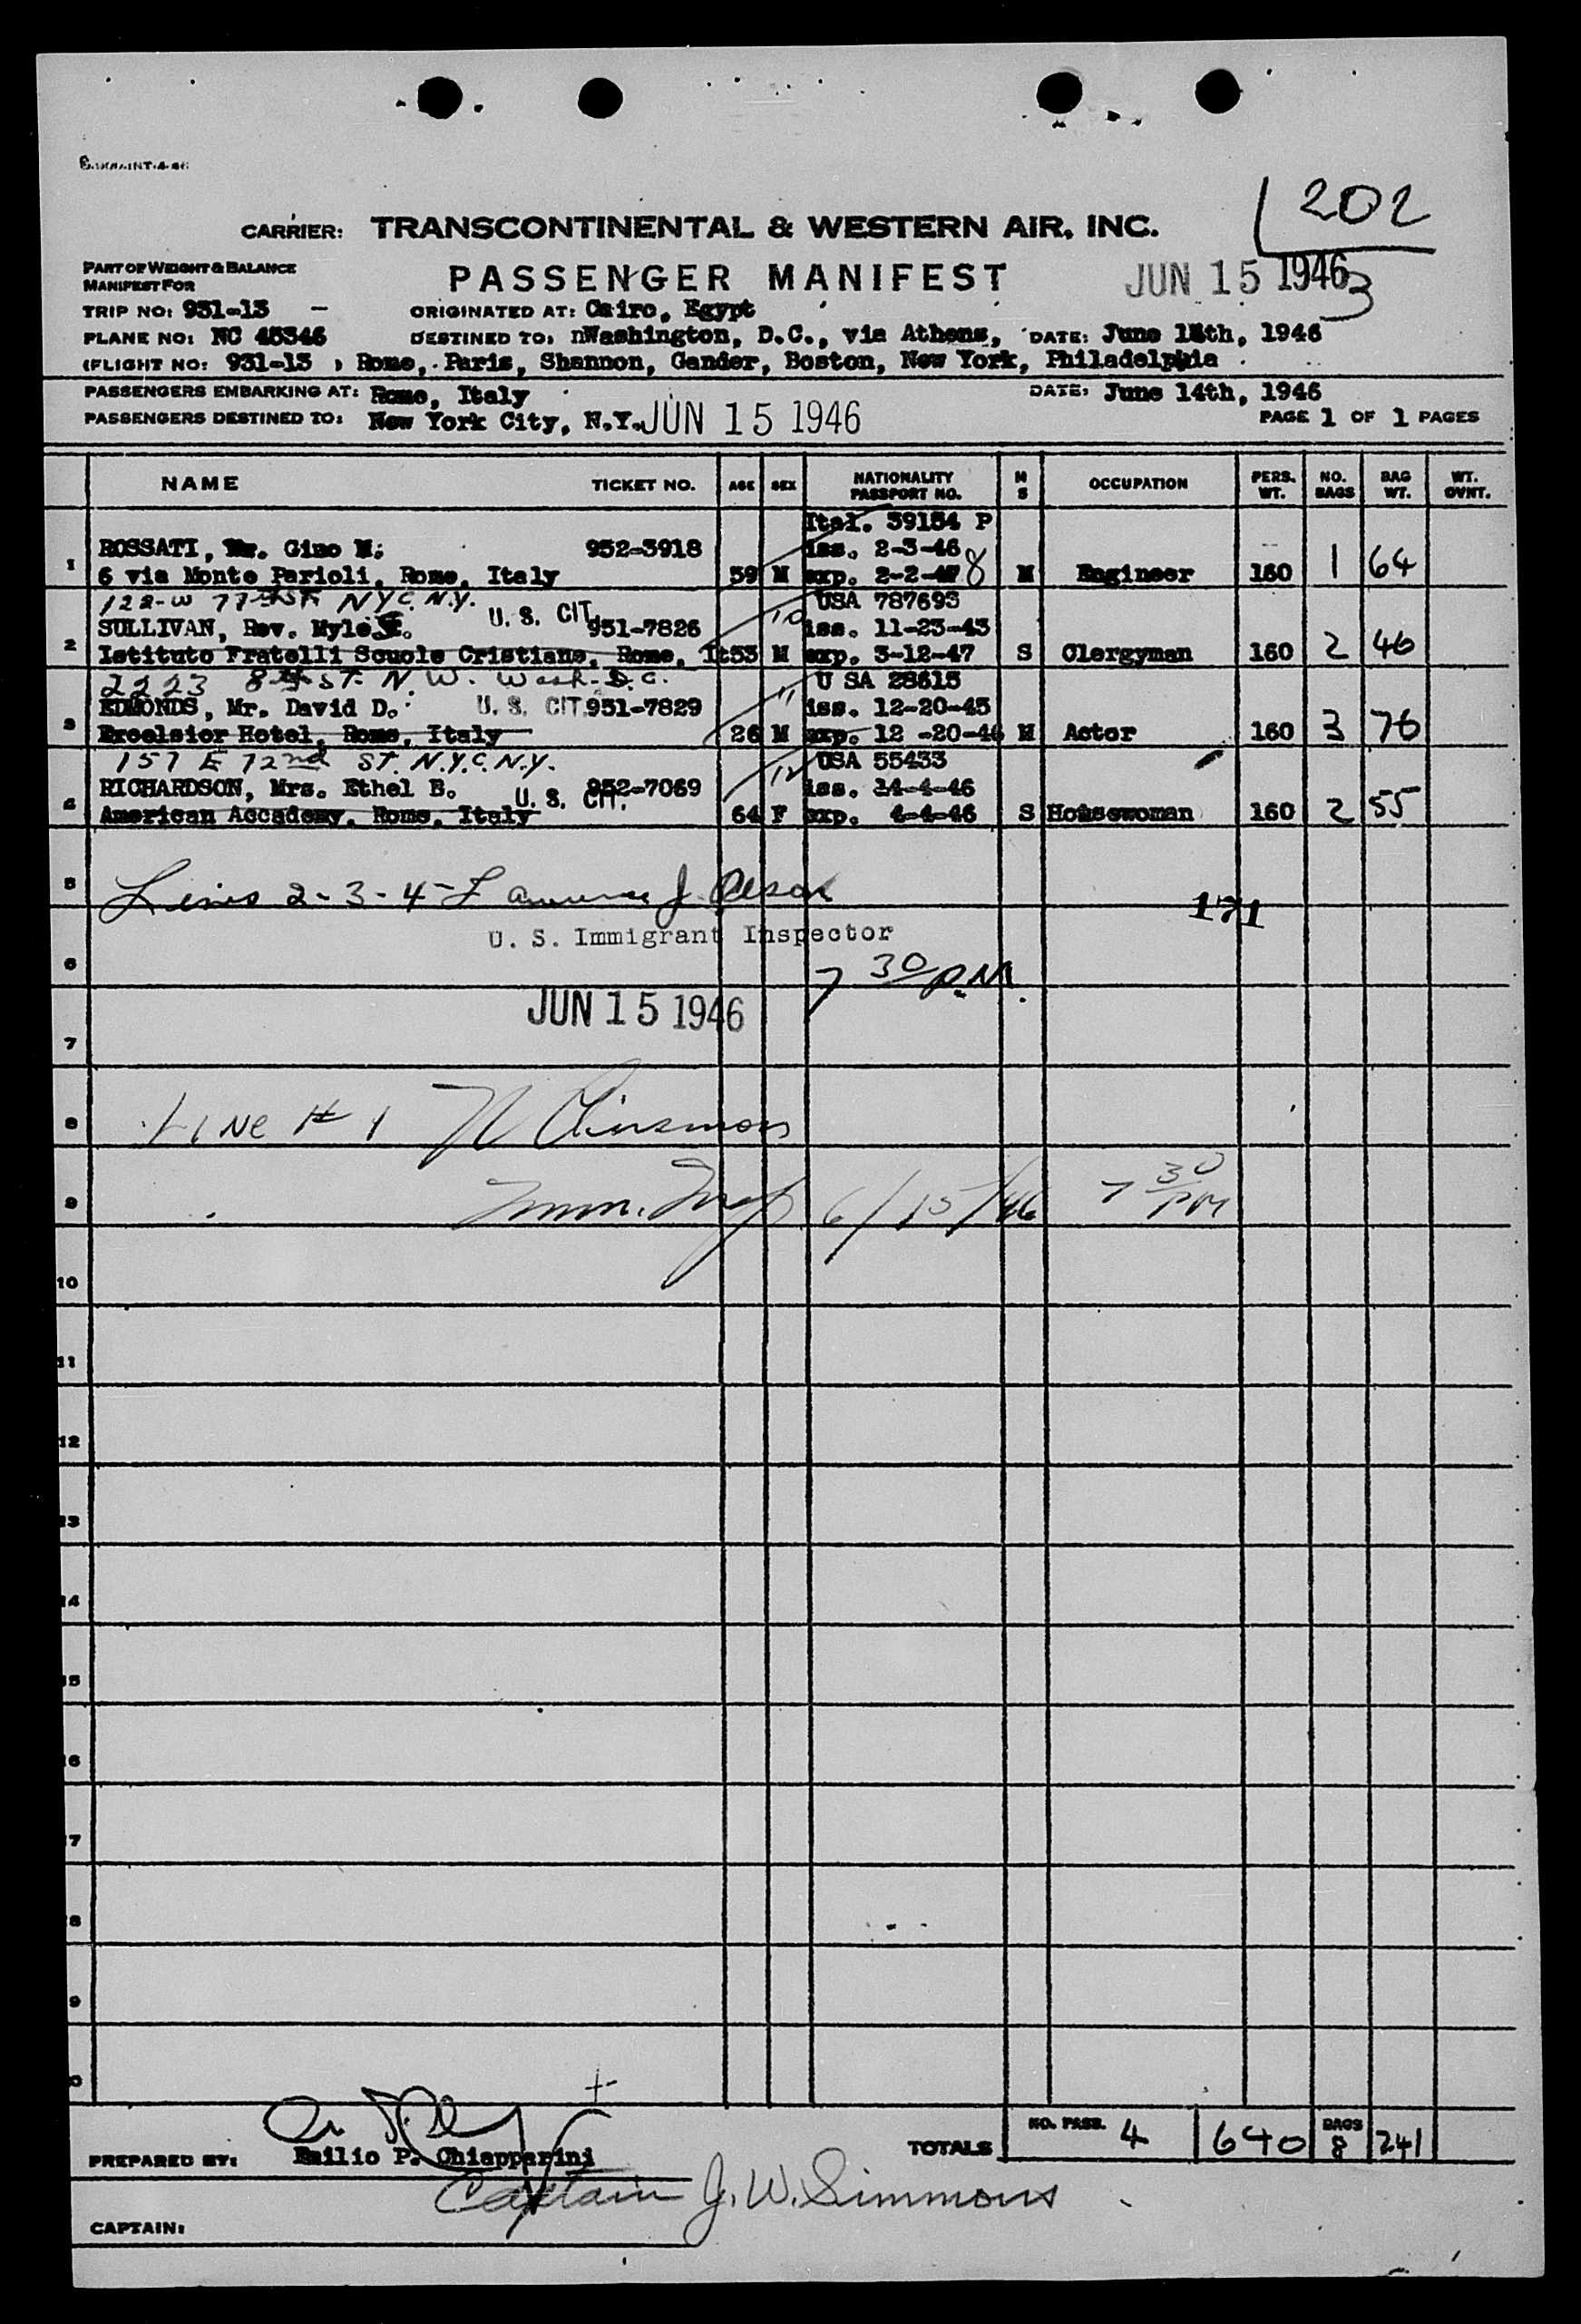 202
CARRIER: TRANSCONTINENTAL & WESTERN AIR, INC.
PART OF WEIGHT & BALANCE
MANIFEST FOR
PASSENGER MANIFEST
JUN 15 1946
3
TRIP NO: 931-13 –
ORIGINATED AT: Cairo, Egypt
PLANE NO: NC 45346
DESTINED TO: Washington, D.C., via Athens, DATE: June 14th, 1946
(FLIGHT NO: 931-13 ) Rome, Paris, Shannon, Gander, Boston, New York, Philadelphia
PASSENGERS EMBARKING AT: Rome, Italy
DATE: June 14th, 1946
PASSENGERS DESTINED TO: New York City, N.Y. JUN 15 1946
PAGE 1 OF 1 PAGES
NAME TICKET NO. AGE SEX NATIONALITY PASSPORT NO. M S OCCUPATION PERS. WT. NO. BAGS BAG WT. WT. OVNT.
Ital. 39154 P
ROSSATI, Mr. Gino M. 952-3918 iss. 2-3-46
1 6 via Monte Parioli, Rome, Italy 59 M exp. 2-2-48 M Engineer 160 1 64
122-W 77th St. NYC. N.Y. USA 787693
SULLIVAN, Rev. Myles U. S. CIT. 951-7826 10 iss. 11-23-43
2 Istituto Fratelli Scuole Cristiane, Rome, It 53 M exp. 3-12-47 S Clergyman 160 2 46
2223 8th ST. N.W. Wash. D.C. U SA 28615
EDMONDS, Mr. David D. U. S. CIT. 951-7829 11 iss. 12-20-45
3 Excelsior Hotel, Rome, Italy 26 M exp. 12 -20-46 M Actor 160 3 76
157 E 72nd ST. N.Y.C. N.Y. USA 55433
RICHARDSON, Mrs. Ethel B. U. S. CIT. 952-7069 12 iss. 4-4-46
4 American Accademy, Rome, Italy 64 F exp. 4-4-46 S Housewoman 160 2 55
5 Lines 2-3-4- Lawrence J. Olson
171
U. S. Immigrant Inspector
6 7 30 P.M.
JUN 15 1946
7
8 LINE # 1
9 Imm. Insp 6/15/46 7 30 PM
10
11
12
13
14
15
6
7
8
9
0
PREPARED BY: Emilio P. Chiapparini
TOTALS NO. PASS. 4 640 BAGS 8 241
Captain J. W. Simmons
CAPTAIN: